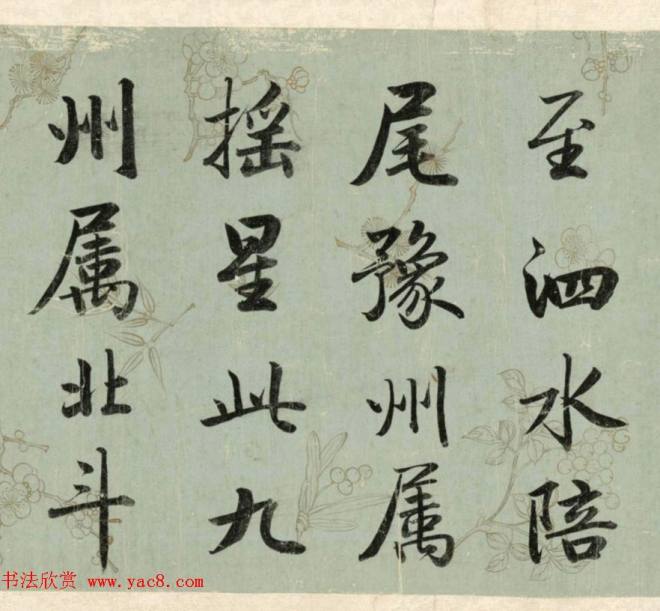 至泗水陪
尾豫州属
摇星此九
州属北斗
书法欣赏 www.yac8.com